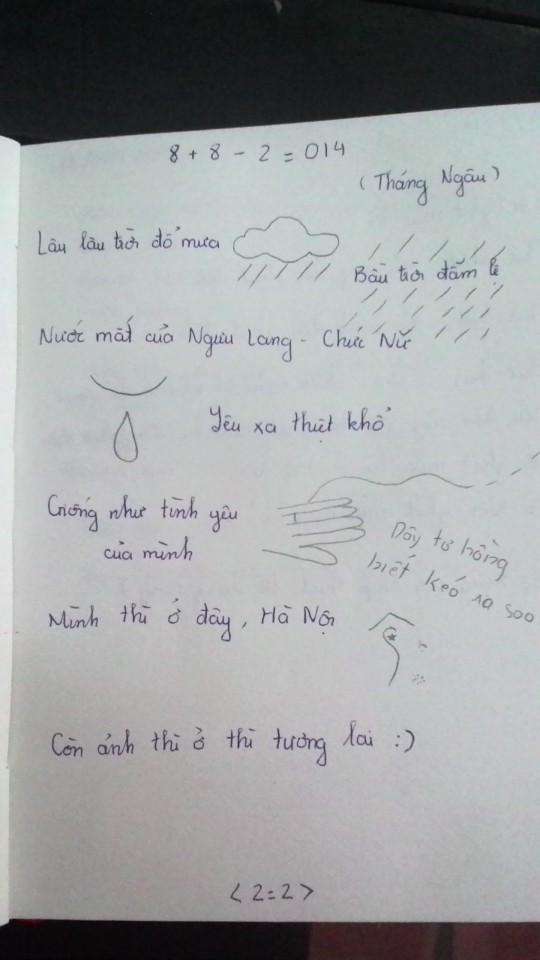 8 + 8 - 2 = 014
(Tháng Ngâu)
Lâu lâu trời đổ mưa
Bầu trời đẫm lệ
Nước mắt của Ngưu Lang - Chức Nữ
Yêu xa thiệt khổ
Giống như tình yêu
của mình
Dây tơ hồng
biết kéo ra sao
Mình thì ở đây, Hà Nội
Còn ảnh thì ở thì tương lai :)
< 2=2 >